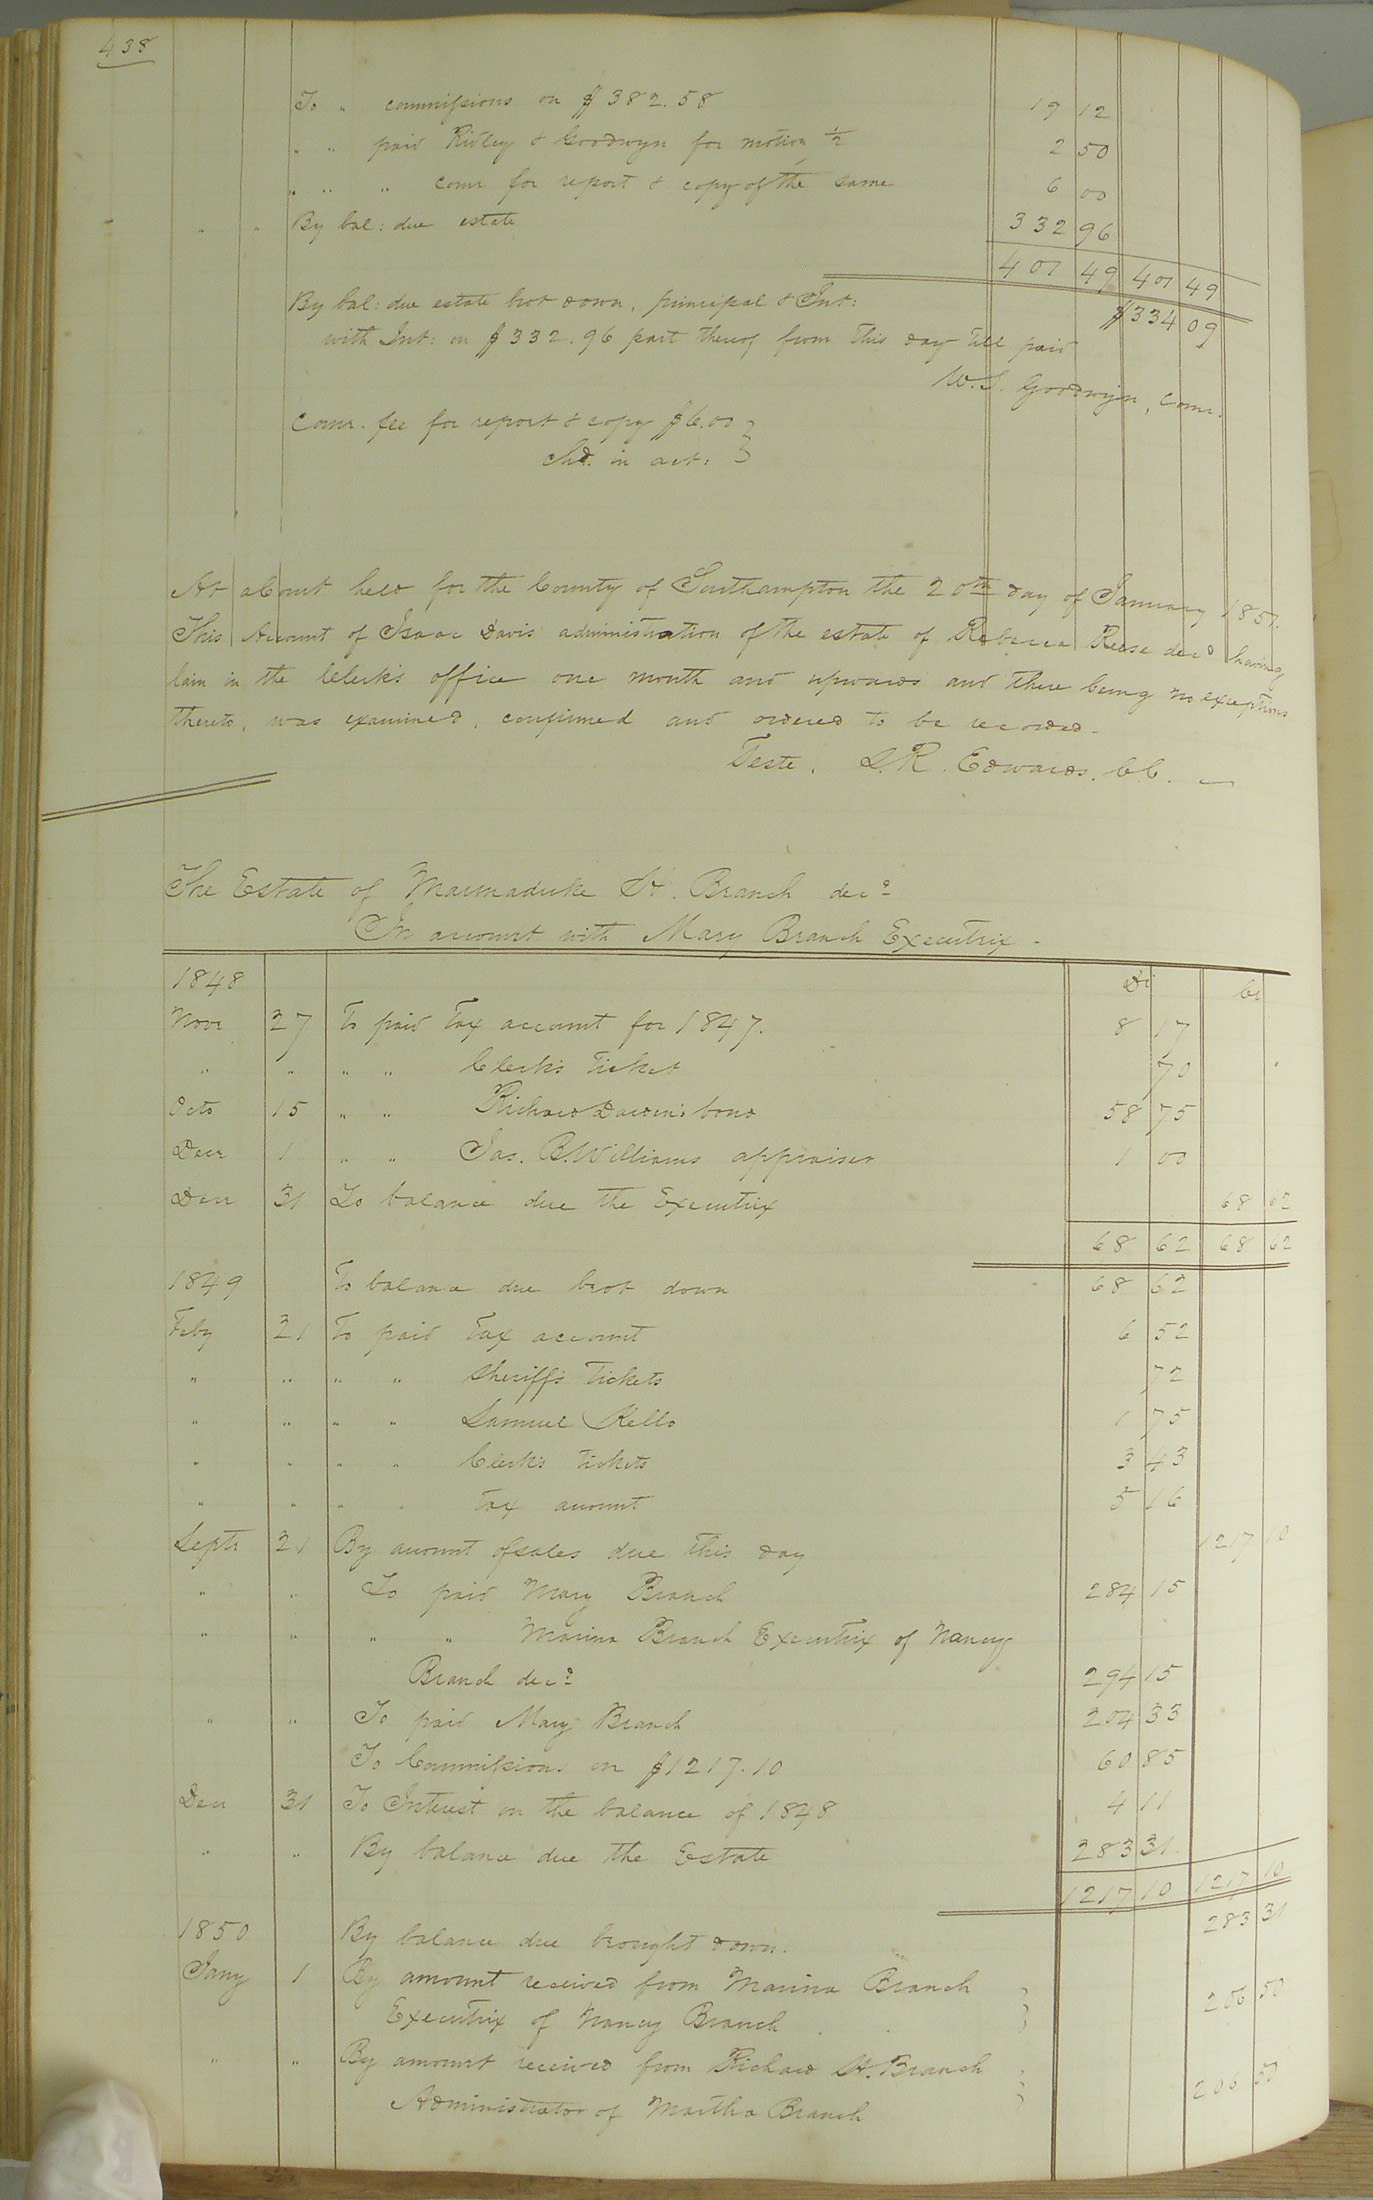 438
To " commissions on $382.58 19 12
" " paid Ridley & Goodwyn for motion 1/2 2 50
" " " comr for report & copy of the same 6 00
" " By bal: due estate 332 96
401 49 401 49
By bal: due estate brot down, principal & Int: $334 09
with Int: on $332.96 part thereof from this day till paid
W.S. Goodwyn, comr.
Comr. fee for report & copy $6.00 }
chd. in act: }
At a Court held for the County of Southampton the 20th day of January 1851.
This Account of Isaac Davis administration of the estate of Rebecca Reese decd having
lain in the Clerks office one month and upwards and there being no exceptions
thereto, was examined, confirmed and ordered to be recorded.
Teste. L.R. Edwards. C.C.
The Estate of Marmaduke H. Branch decd
In account with Mary Branch Executrix.
1848 Dr Cr
Novr 27 To paid tax account for 1847. 8 17
" " " " Clerks ticket 70
Octo 15 " " Richard Darden's bond 58 75
Decr 1 " " Jas. B. Williams appraiser 1 00
Decr 31 To balance due the Executrix 68 62
68 62 68 62
1849 To balance due brot down 68 62
Feby 21 To paid Tax account 6 52
" " " " Sheriffs Tickets 72
" " " " Samuel Kello 1 75
" " " " Clerks tickets 3 43
" " " " tax amount 5 16
Septr 21 By amount of sales due this day 1217 10
" " To paid Mary Branch 284 15
" " " " Marina Branch Executrix of Nancy
Branch decd 294 15
" " To paid Mary Branch 204 33
To Commissions on $1217.10 60 85
Decr 31 To Interest on the balance of 1848 4 11
" " By balance due the Estate 283 31.
1217 10 1217 10
1850 By balance due brought down. 283 31
Jany 1 By amount received from Marina Branch }
Executrix of Nancy Branch } 206 50
" " By amount received from Richard H. Branch }
Administrator of Martha Branch } 206 50